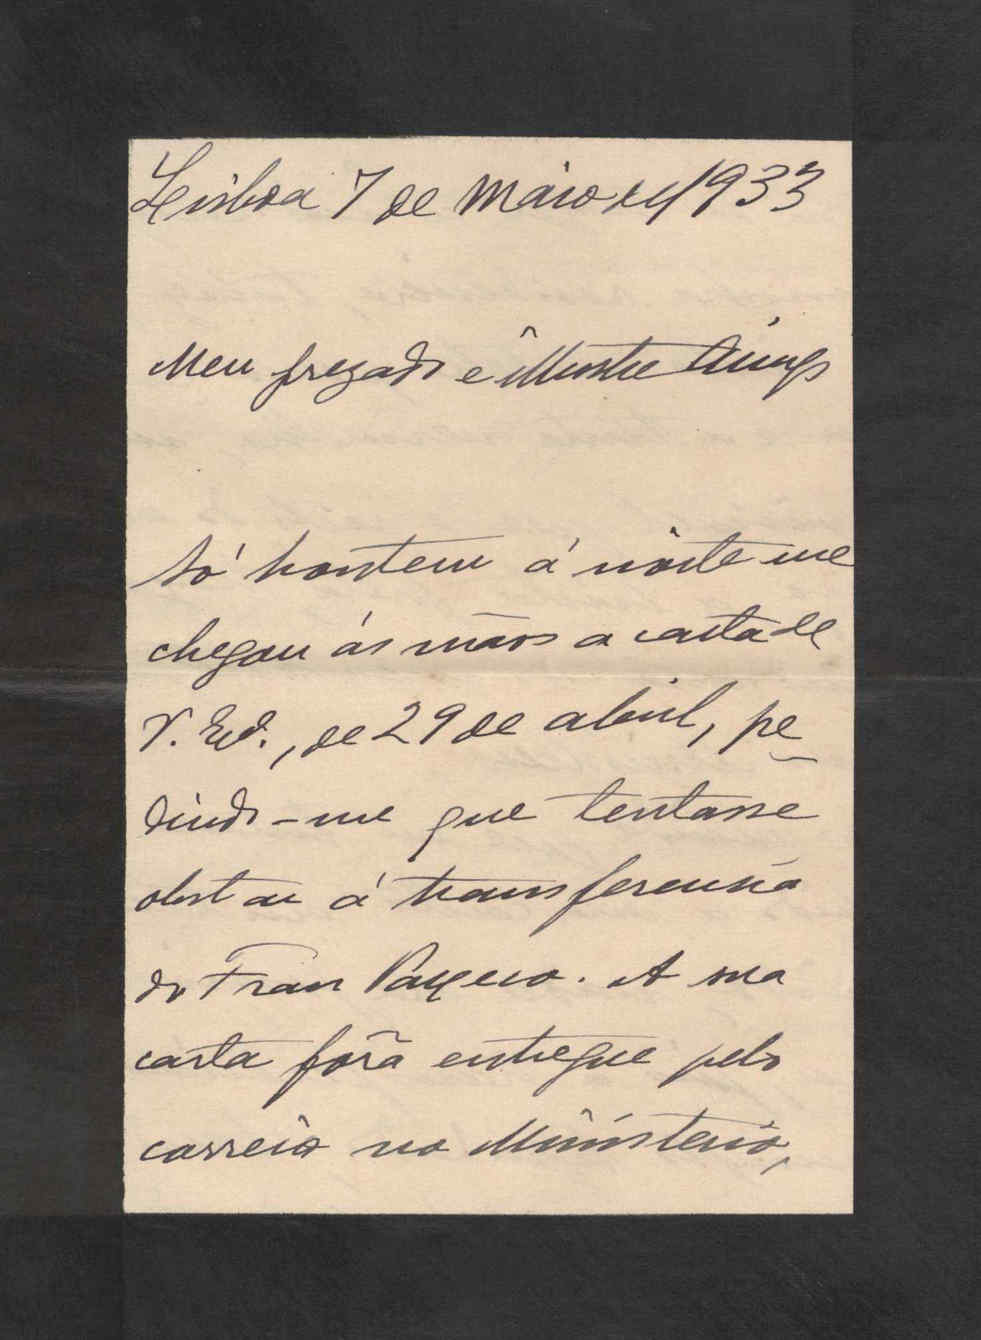 Lisboa 7 de Maio de 1933
Meu prezado e illustre Amigo
Só hontem á noite me
chegou ás mãos a carta de
V. Exª., de 29 de abril, pe
dindo-me que tentasse
obstar á transferencia
do Fran Paxeco. A sua
carta fôra entregue pelo
correio no Ministerio,